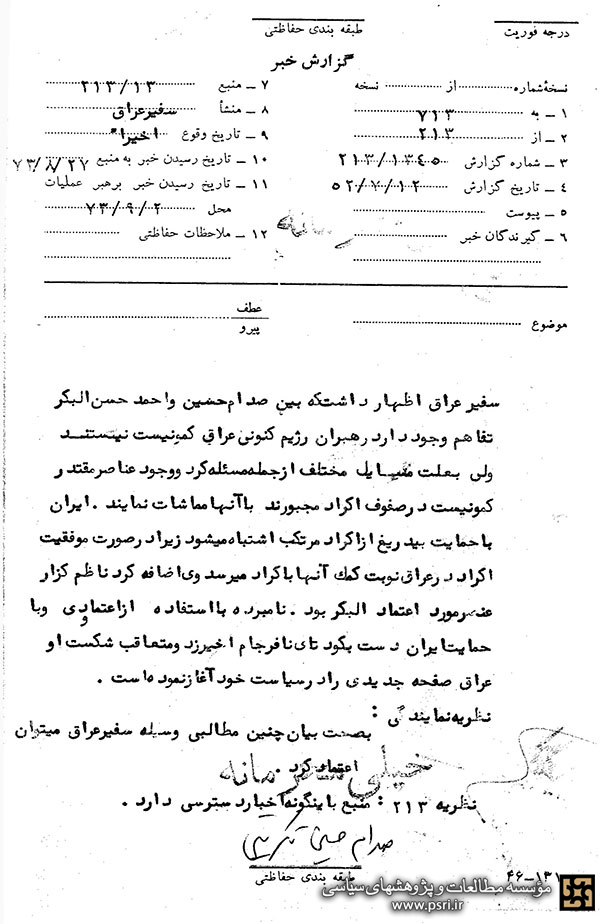 درجه فوریت
طبقه بندی حفاظتی
گزارش خبر
نسخهٔ شماره .......... از .......... نسخه
۱ ـ به ۷۱۳
۲ ـ از ۲۱۳
۳ ـ شماره گزارش ۲۱۳/۱۳۴۵
۴ ـ تاریخ گزارش ۵۲/۷/۱۲
۵ ـ پیوست
۶ ـ گیرندگان خبر
۷ ـ منبع ۲۱۳/۱۳
۸ ـ منشأ سفیر عراق
۹ ـ تاریخ وقوع اخیراً
۱۰ ـ تاریخ رسیدن خبر به منبع ۷۳/۸/۲۷
۱۱ ـ تاریخ رسیدن خبر برهبر عملیات
محل ۷۳/۹/۲
۱۲ ـ ملاحظات حفاظتی
موضوع
عطف
پیرو
سفیر عراق اظهار داشتکه بین صدام حسین و احمد حسن البکر
تفاهم وجود دارد رهبران رژیم کنونی عراق کمونیست نیستند
ولی بعلت مسایل مختلف از جمله مسئله کرد و وجود عناصر مقتدر
کمونیست در صفوف اکراد مجبورند با آنها مماشات نمایند . ایران
با حمایت بیدریغ از اکراد مرتکب اشتباه میشود زیرا در صورت موفقیت
اکراد در عراق نوبت کمک آنها با کراد میرسد وی اضافه کرد ناظم کزار
عنصر مورد اعتماد البکر بود . نامبرده با استفاده از اعتماد وی و با
حمایت ایران دست بکودتای نافرجام اخیر زد و متعاقب شکست او
عراق صفحه جدیدی را در سیاست خود آغاز نموده است .
نظریه نمایندگی :
بصحت بیان چنین مطالبی وسیله سفیر عراق میتوان
اعتماد کرد .
خیلی محرمانه
نظریه ۲۱۳ : منبع باینگونه اخبار دسترسی دارد .
صدام حسین تکریتی
طبقه بندی حفاظتی
۴۶-۱۳۱
مؤسسه مطالعات و پژوهشهای سیاسی
www.psri.ir